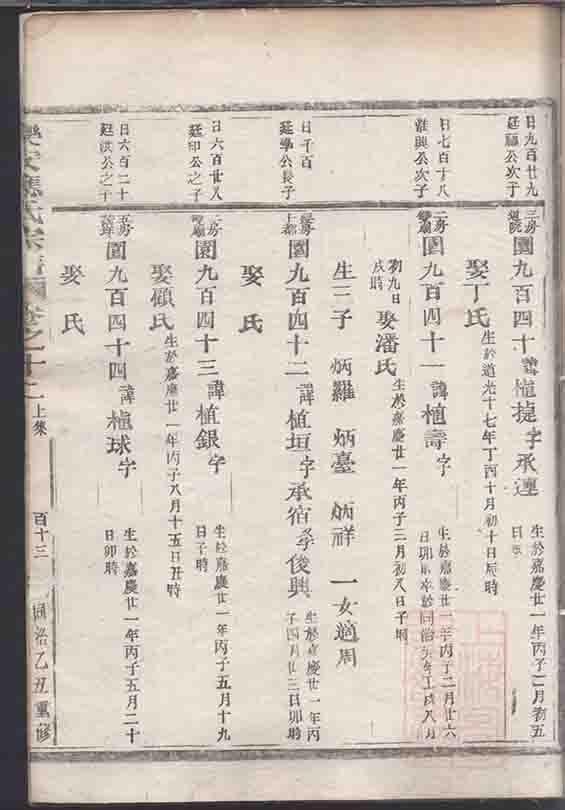 日九百廿九
廷福公次子
三房
道院
園九百四十
諱
植提
字
承運
生於嘉慶廿一年丙子二月初五
日
娶丁氏
生於道光十七年丁酉十月初十日辰時
日七百十八
公次子
二房
園九百四十一
諱
植壽
字
生於嘉慶廿一年丙子二月廿六
日卯時卒於同治
年
八月
初九日
戌時
娶潘氏
生於嘉慶廿一年丙子三月初八日子時
生三子 炳羅 炳臺 炳祥 一女適周
日千百
廷學公長子
上都
園九百四十二
諱
植垣
字
承宿
俊興
生於嘉慶廿一年丙
子四月廿三日卯時
娶氏
日六百廿八
廷印公之子
園九百四十三
諱
植銀
字
生於嘉慶廿一年丙子五月十九
日子時
娶顧氏
生於嘉慶廿一年丙子八月十五日丑時
日六百二十
廷洪公之子
五房
園九百四十四
諱
植球
字
生於嘉慶廿一年丙子五月二十
日卯時
娶氏
氏宗
卷之十二
上集
百十三
同治乙丑重修